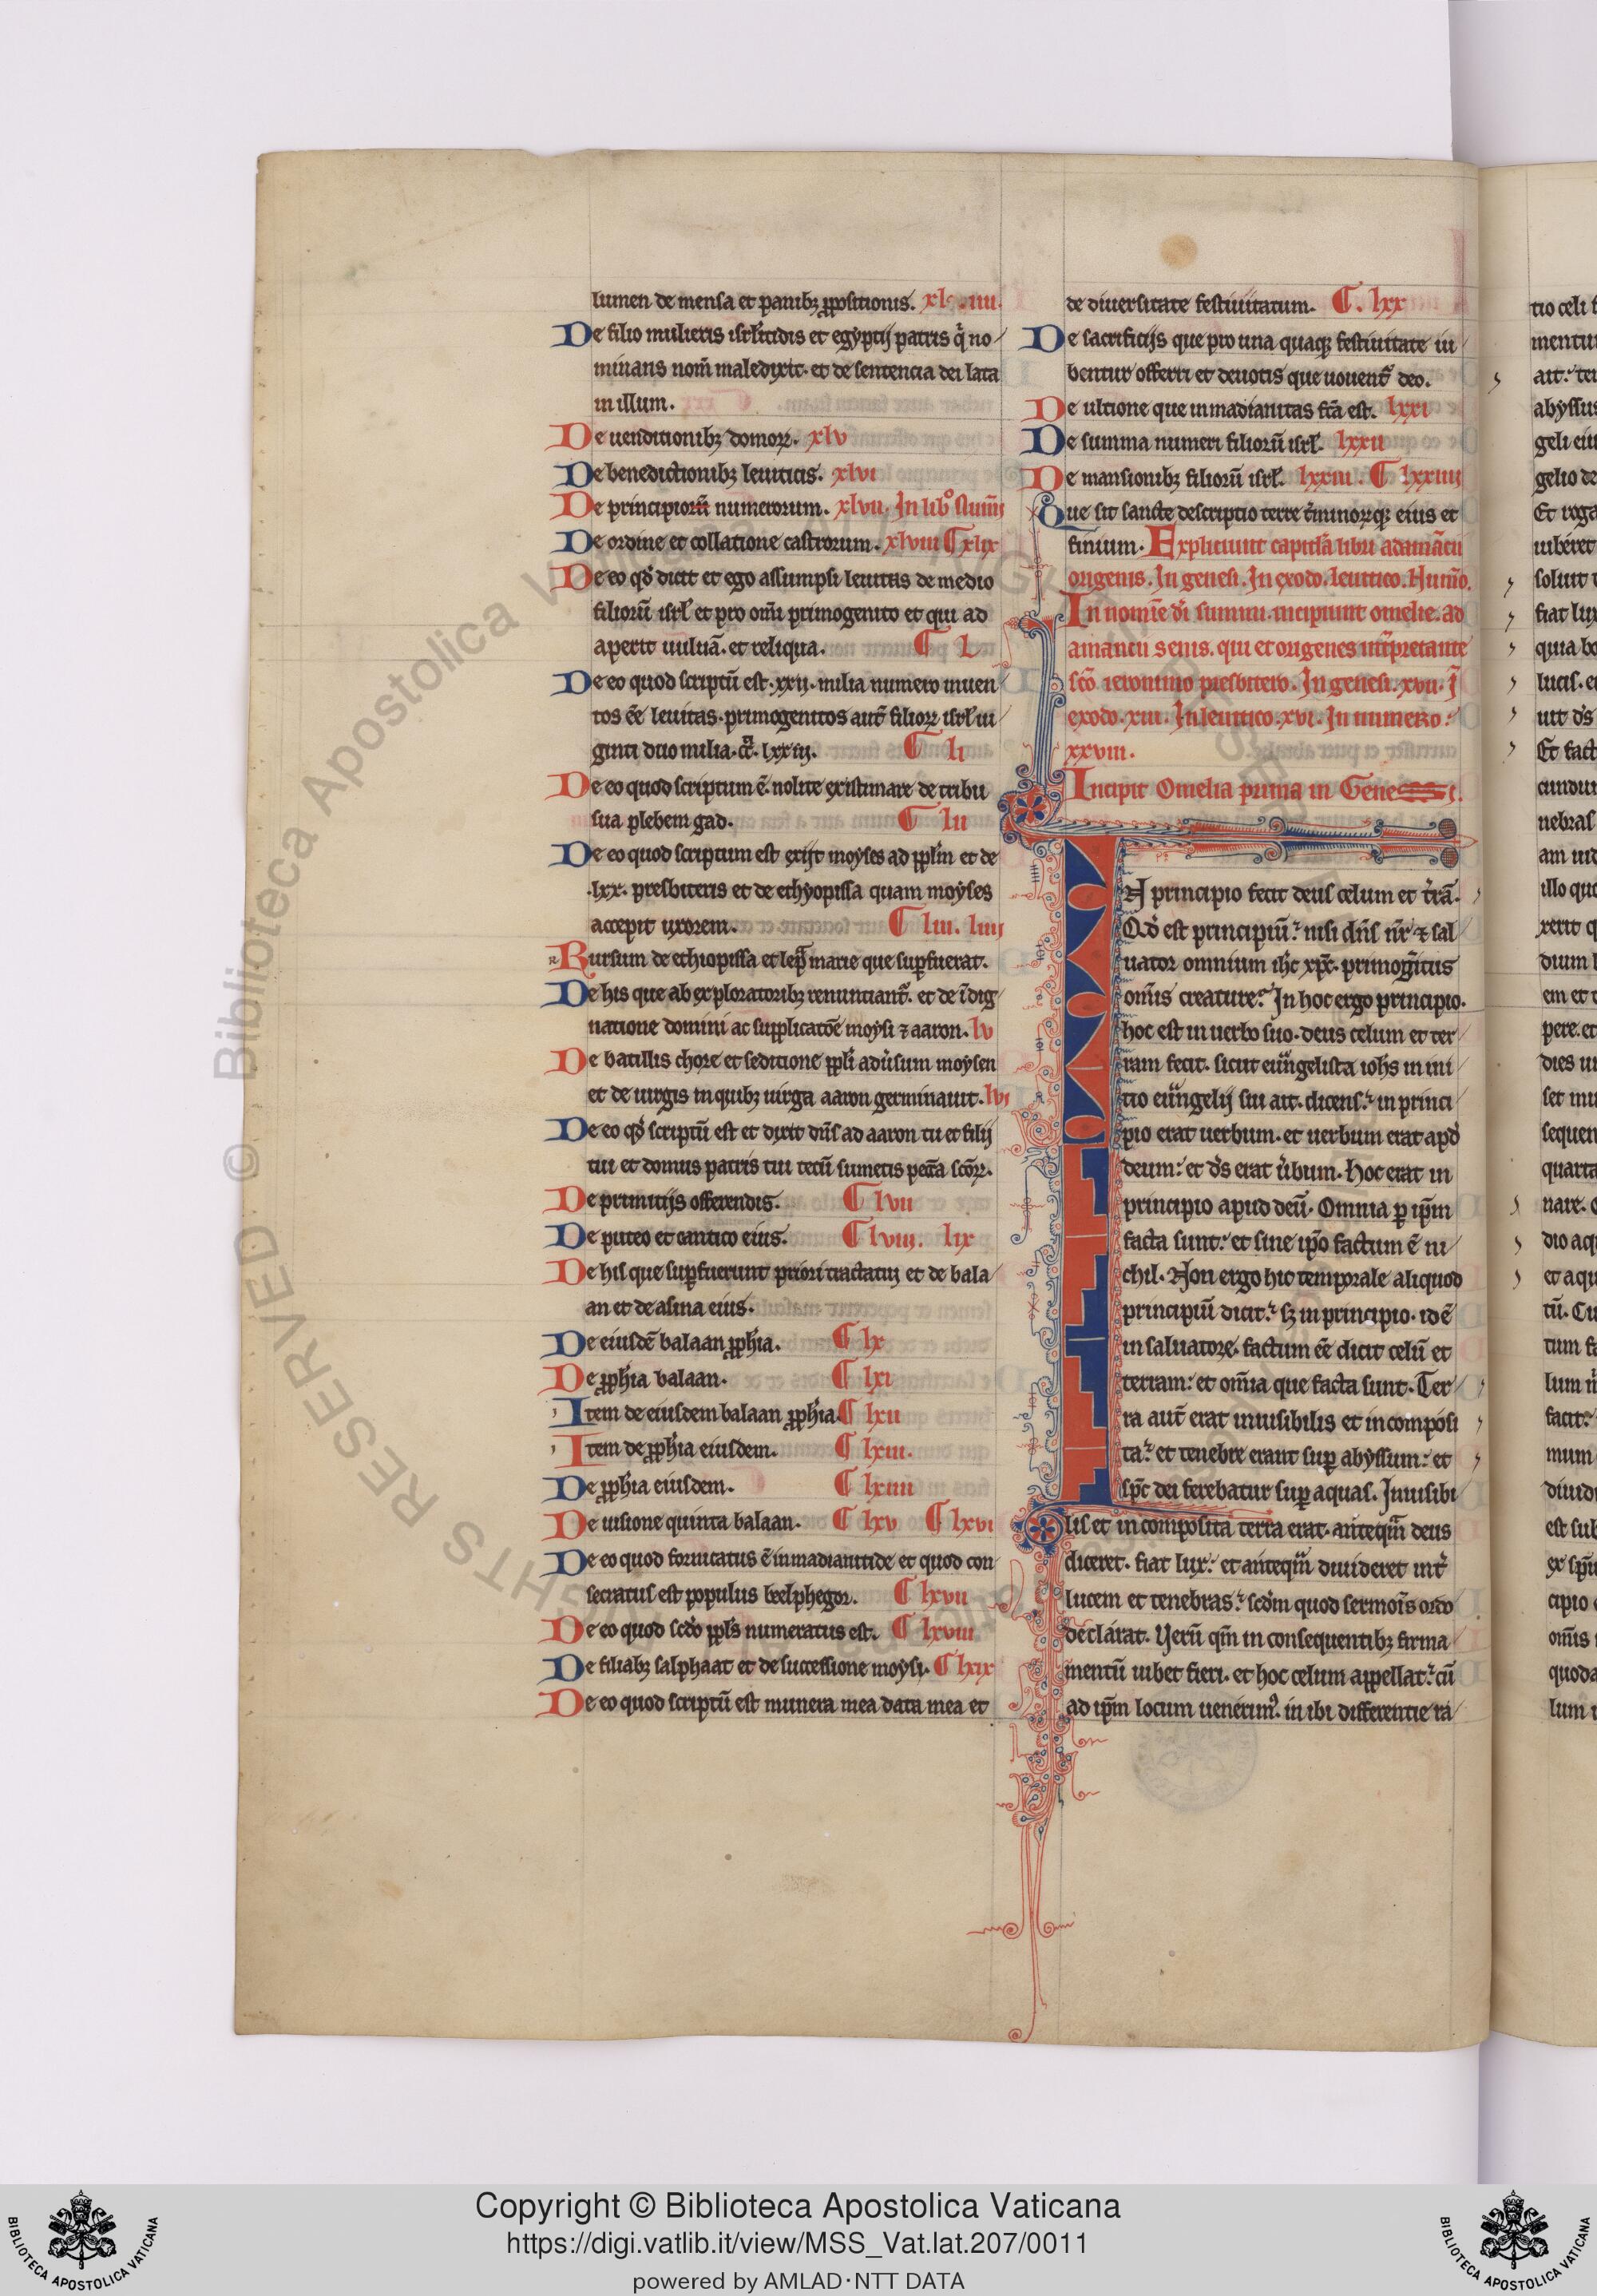 lumen de mensa et panibꝫ ꝓpositionis. xl  iiii.
De filio mulieris isrl̕itidis et egyptij patris q̇ no
minans nom̄ maledixit. et de sentencia dei lata
in illum.
De uenditionibꝫ domoꝝ. xlv
De benedictionibꝫ leuiticis. xlvi
De principiorū numerorum. xlvii. In lib̊ Num̄
De ordine et collatione castrorum. xlviii ¶ xlix
De eo qd̕ dicit et ego assumpsi leuitas de medio
filiorū isrl̕ et pro om̄i primogenito et qui ad
aperit uuluā. et reliqua. ¶ L
De eo quod scriptū est. xxij. milia numero inuen
tos eē leuitas. primogenitos aut̄ filioꝝ isrl̕ ui
ginti duo milia. cc̄. lxxiij. ¶ li
De eo quod scriptum ē. nolite existimare de tribu
sua plebem gad. ¶ lii
De eo quod scriptum est exijt moyses ad ppl̕m et de
.lxx. presbiteris et de ethyopissa quam moyses
accepit uxorem. ¶ liii. liiij
Rursum de ethiopissa et lepra marie que suꝑfuerat.
De his que ab exploratoribꝫ renunciant᷑. et de īdig
natione domini ac supplicatōe moysi ⁊ aaron. lv
De batillis chore et seditione ppl̕i adu̕sum moysen
et de uirgis in quibꝫ uirga aaron germinauit. lvi
De eo qd̕ scriptū est et dixit dn̄s ad aaron tu et filij
tui et domus patris tui tecū sumetis pecc̄a sc̄oꝝ.
De primitijs offerendis. ¶ lvii
De puteo et cantico eius. ¶ lviii. lix
De his que suꝑfuerunt priori tractatui et de bala
an et de asina eius.
De eiusdē balaan ꝓph̕ia. ¶ lx
De ꝓph̕ia balaan. ¶ lxi
Item de eiusdem balaan ꝓph̕ia ¶ lxii
Item de ꝓph̕ia eiusdem. ¶ lxiii.
De ꝓph̕ia eiusdem. ¶ lxiiii
De uisione quinta balaan. ¶ lxv ¶ lxvi
De eo quod fornicatus ē in madianitide et quod con
secratus est populus beelphegor. ¶ lxvii
De eo quod scd̕o ppl̕s numeratus est. ¶ lxviii
De filiabꝫ salphaat et de successione moysi. ¶ lxix
De eo quod scriptū est munera mea data mea et
de diuersitate festiuitatum. ¶. lxx
De sacrificijs que pro una quaqꝫ festiuitate iu
bentur offerri et deuotis que uouent᷑ deo.
De ultione que in madianitas fc̄a est. lxxi
De summa numeri filiorū isrl̕. lxxii
De mansionibꝫ filiorū isrl̕. lxxiii. ¶ lxxiiii
Que sit sancte descriptio terre t̕minoꝝqꝫ eius et
finium. Expliciunt capitl̕a libri adamātii
origenis. In genesi. In exodo. leuitico. Num̄o.
In nomīe dn̄i summi. incipiunt omelie. ad
amantii senis. qui et origenes int̕pretante
sc̄o ieronimo presbitero. In genesi. xvii. ī
exodo. xiii. In leuitico. xvi. In numero.
xxviii.
Incipit Omelia prima in Gene  .
IN principio fecit deus celum et t̕rā.
Qd̕ est principiū? nisi dn̄s nr̄ ⁊ sal
uator omnium ih̄c xp̄c. primogitus
om̄is creature? In hoc ergo principio.
hoc est in uerbo suo. deus celum et ter
ram fecit. sicut euangelista ioh̄s in ini
tio euangelij sui ait. dicens. in princi
pio erat uerbum. et uerbum erat apd̕
deum: et d̄s erat u̕bum. hoc erat in
principio apud deū. Omnia ꝑ ip̄m
facta sunt: et sine ip̄o factum ē ni
chil. Non ergo hic temporale aliquod
principiū dicit᷑. sꝫ in principio. id ē
in saluatore. factum eē dicit celū et
terram: et om̄ia que facta sunt. Ter
ra aut̄ erat inuisibilis et incomposi
ta: et tenebre erant suꝑ abyssum: et
sp̄c dei ferebatur suꝑ aquas. Inuisibi
lis et incomposita terra erat. anteqm̄ deus
diceret. fiat lux: et anteqm̄ diuideret int̕
lucem et tenebras. scd̕m quod sermoīs ordo
declarat. Verū qm̄ in consequentibꝫ firma
mentū iubet fieri. et hoc celum appellat᷑. cū
ad ip̄m locum uenerimꝰ. in ibi differentie ra
tio celi
mentu
ait: ter
abyssus
geli eiu
gelio de
Et roga
iuberet
soluit
fiat lux
quia bo
lucis. e
uit d̄s
Et fact
cundu
nebras
am uid
illo quo
rerit q
dium
em et
pere. et
dies u
set mu
sequen
quarta
nare.
dio aq
et aqu
tū. Cu
tum f
lum
facit:
mum
diuid
est sub
ex sp̄u
cipio
om̄is
quoda
lum
© Biblioteca Apostolica Vaticana
Copyright © Biblioteca Apostolica Vaticana
https://digi.vatlib.it/view/MSS_Vat.lat.207/0011
powered by AMLAD·NTT DATA
BIBLIOTECA APOSTOLICA VATICANA
BIBLIOTECA APOSTOLICA VATICANA